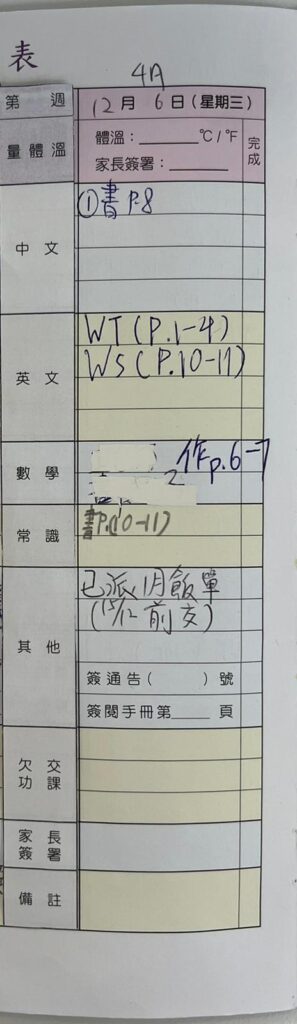 表
4A
第 週 12月 6日(星期三)
量體溫 體溫:______℃/℉ 完成
家長簽署:______
中文 ①書 P.8
英文 WT (P.1-4)
WS (P.10-11)
數學 2 作p.6-7
常識 書P.(10-11)
其他 已派1月飯單
(15/12 前交)
簽通告( )號
簽閱手冊第____頁
欠交功課
家長簽署
備註